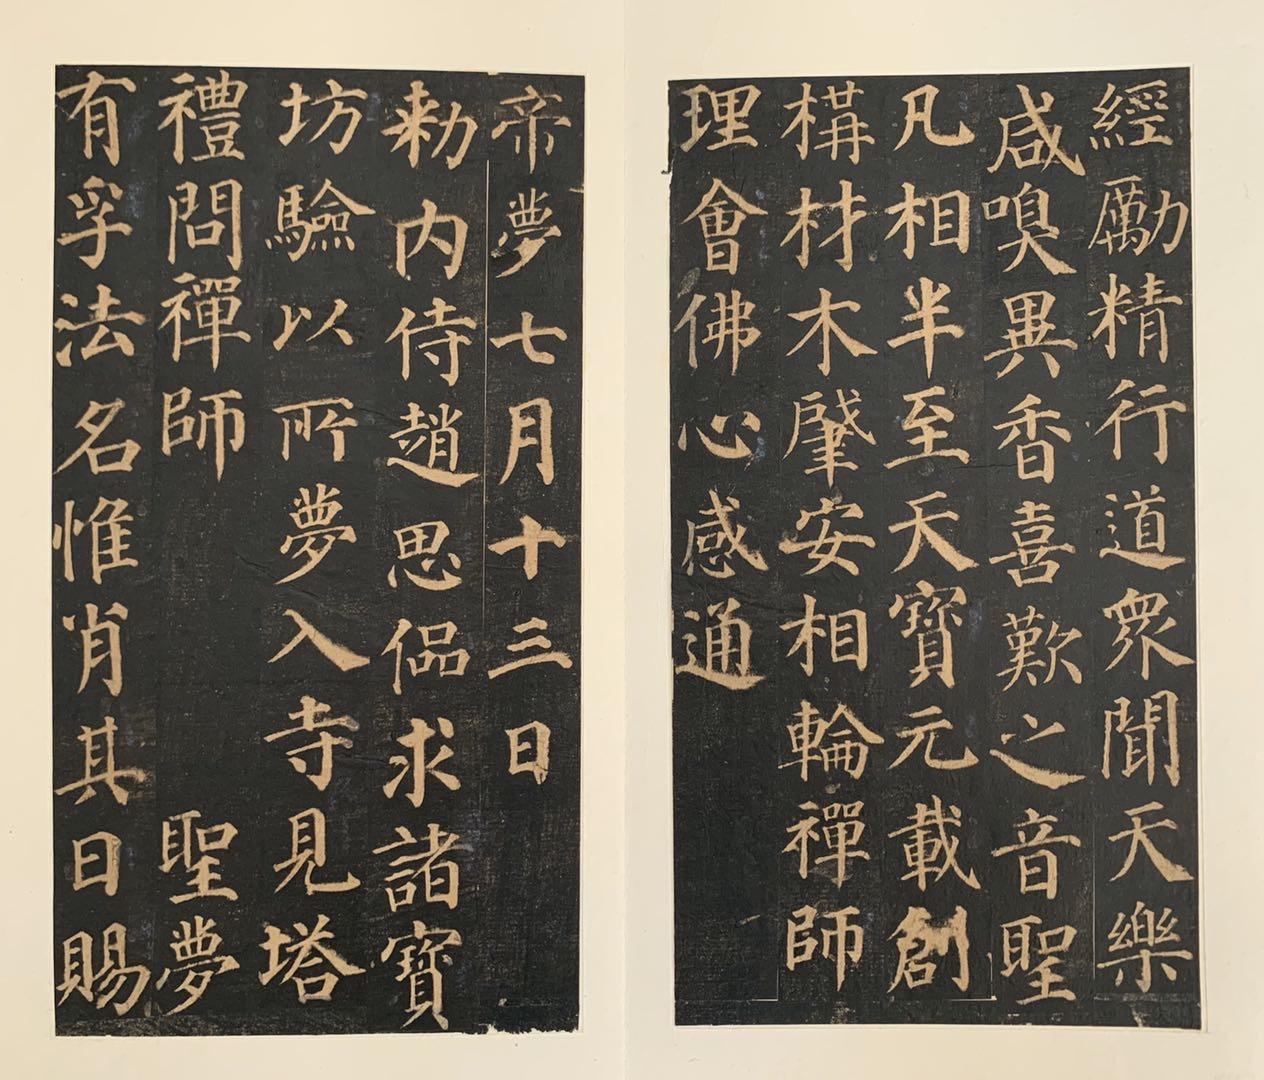 經勵精行道眾聞天樂
咸嗅異香喜歎之音聖
凡相半至天寶元載創
構材木肇安相輪禪師
理會佛心感通
帝夢七月十三日
勑內侍趙思偘求諸寶
坊驗以所夢入寺見塔
禮問禪師 聖夢
有孚法名惟肖其日賜